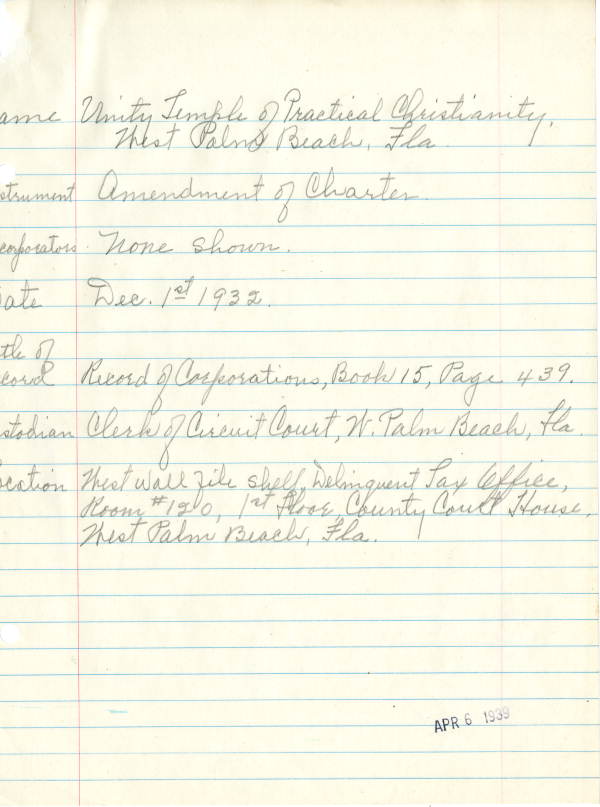 ame Unity Temple of Practical Christianity,
West Palm Beach, Fla.
strument Amendment of Charter.
corporators None shown.
ate Dec. 1st 1932.
tle of
cord Record of Corporations, Book 15, Page 439.
stodian Clerk of Circuit Court, W. Palm Beach, Fla.
ocation West wall file shelf, Delinquent Tax Office,
Room #120, 1st Floor, County Court House,
West Palm Beach, Fla.
APR 6 1939